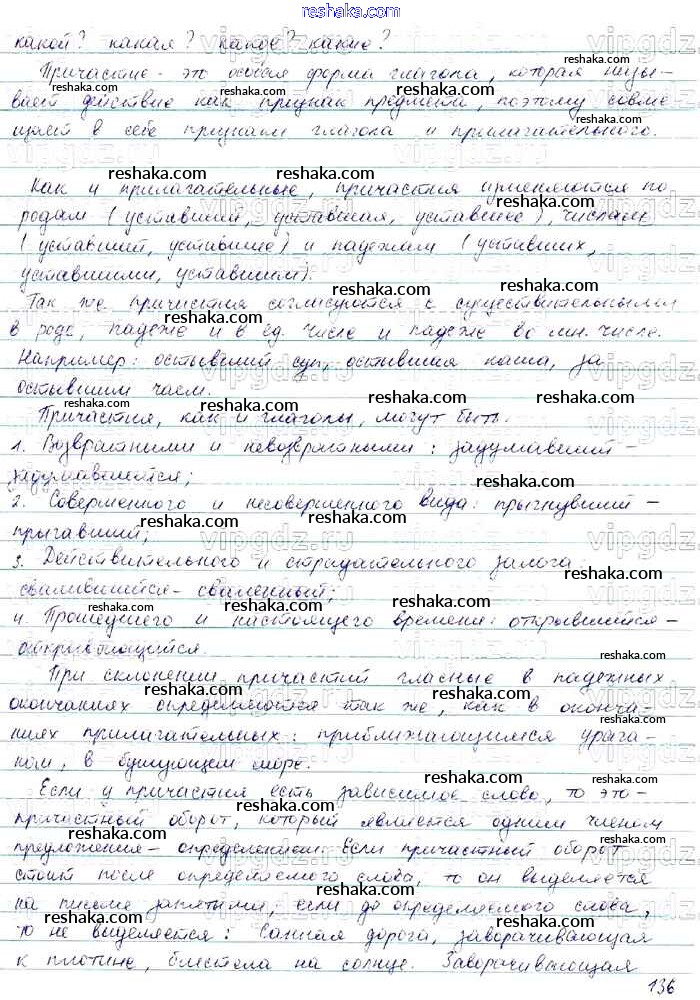 reshaka.com
какой? какая? какое? какие?
Причастие - это особая форма глагола, которая назы-
вает действие как признак предмета, поэтому совме
щает в себе признаки глагола и прилагательного.
Как и прилагательные, причастия изменяются по
родам (уставший, уставшая, уставшее), числам
(уставший, уставшие) и падежам (уставших,
уставшими, уставшим).
Так же причастия согласуются с существительными
в роде, падеже и в ед. числе и падеже во мн. числе.
Например: остывший суп, остывшая каша, за
остывшим чаем.
Причастия, как и глаголы, могут быть:
1. Возвратными и невозвратными: задумавший -
задумавшийся;
2. Совершенного и несовершенного вида: прыгнувший -
прыгавший;
3. Действительного и страдательного залога
свалившийся - сваленный;
4. Прошедшего и настоящего времени: открывшийся -
открывающийся.
При склонении причастий гласные в падежных
окончаниях определяются так же, как в оконча-
ниях прилагательных: приближающимся урага-
ном, в бушующем море.
Если у причастия есть зависимое слово, то это -
причастный оборот, который является одним членом
предложения - определением. Если причастный оборот
стоит после определяемого слова, то он выделяется
на письме запятыми, если до определяемого слова,
то не выделяется: Санная дорога, заворачивающая
к плотине, блестела на солнце. Заворачивающая
136